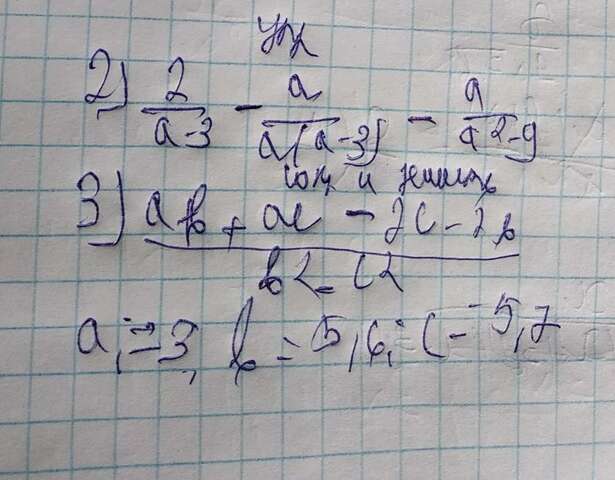 упр
2) 2/(a-3) - a/(a(a-3)) - a/(a²-9)
сокр и решить
3) (ab + ac - 2c - 2b)/(b2 - c2)
a, = 3, b = 5,6; c - 5,7